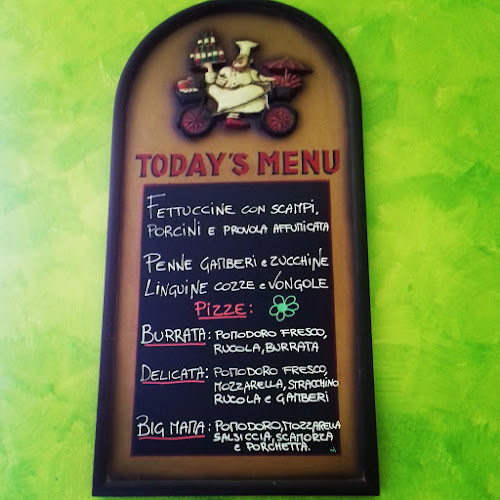 TODAY'S MENU
FETTUCCINE CON SCAMPI,
PORCINI E PROVOLA AFFUMICATA
PENNE GAMBERI e ZUCCHINE
LINGUINE COZZE e VONGOLE
PIZZE:
BURRATA: POMODORO FRESCO,
RUCOLA, BURRATA
DELICATA: POMODORO FRESCO,
MOZZARELLA, STRACCHINO
RUCOLA e GAMBERI
BIG MAMA: POMODORO, MOZZARELLA
SALSICCIA, SCAMORZA
e PORCHETTA.